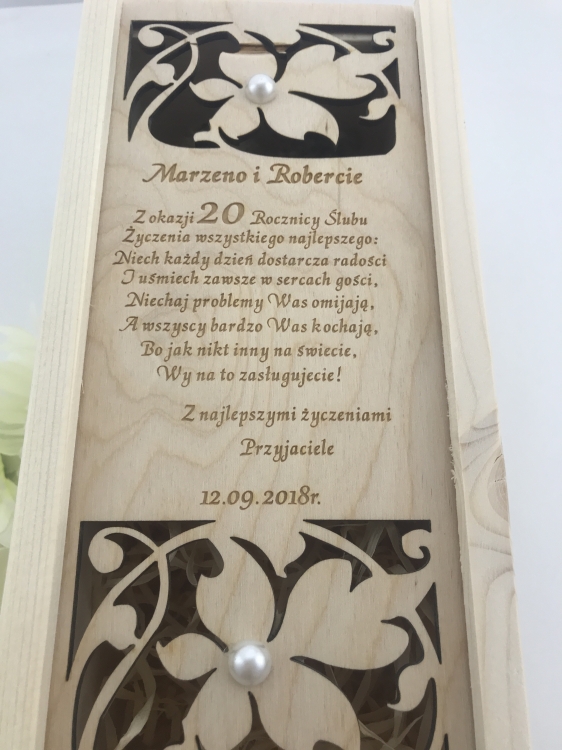 Marzeno i Robercie
Z okazji 20 Rocznicy Ślubu
Życzenia wszystkiego najlepszego:
Niech każdy dzień dostarcza radości
I uśmiech zawsze w sercach gości,
Niechaj problemy Was omijają,
A wszyscy bardzo Was kochają,
Bo jak nikt inny na świecie,
Wy na to zasługujecie!
Z najlepszymi życzeniami
Przyjaciele
12.09.2018r.